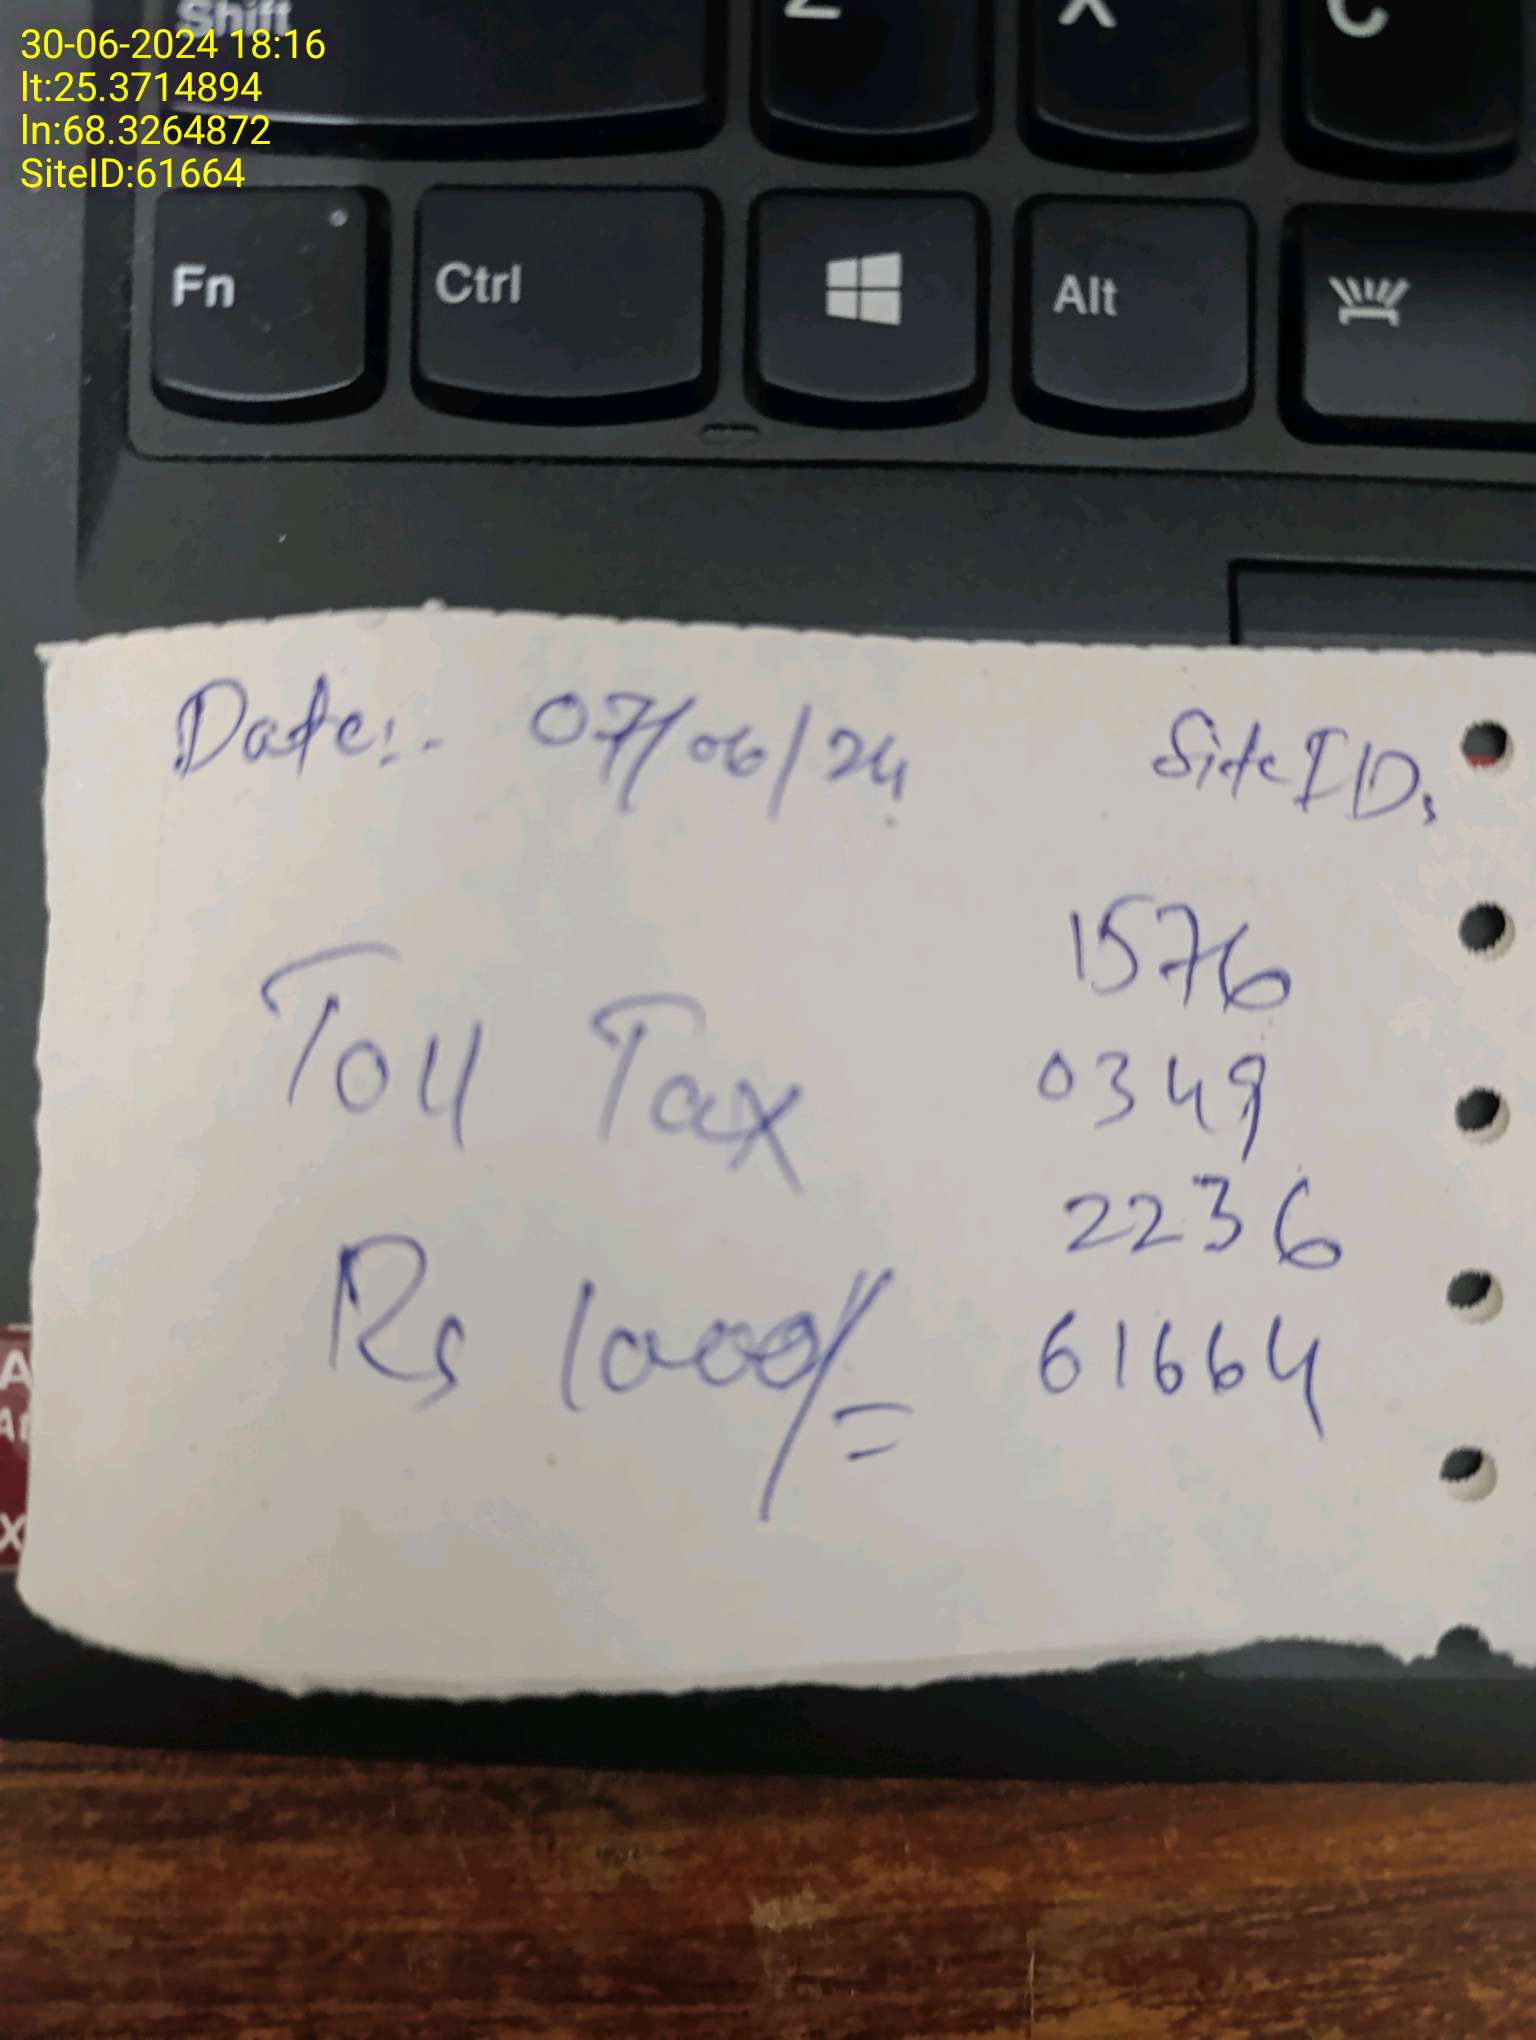 30-06-2024 18:16
lt:25.3714894
ln:68.3264872
SiteID:61664
Shift Z X C
Fn Ctrl Alt
Date:- 07/06/24 Site IDs
1576
Toll Tax 0349
2236
Rs 1000/= 61664
A
X